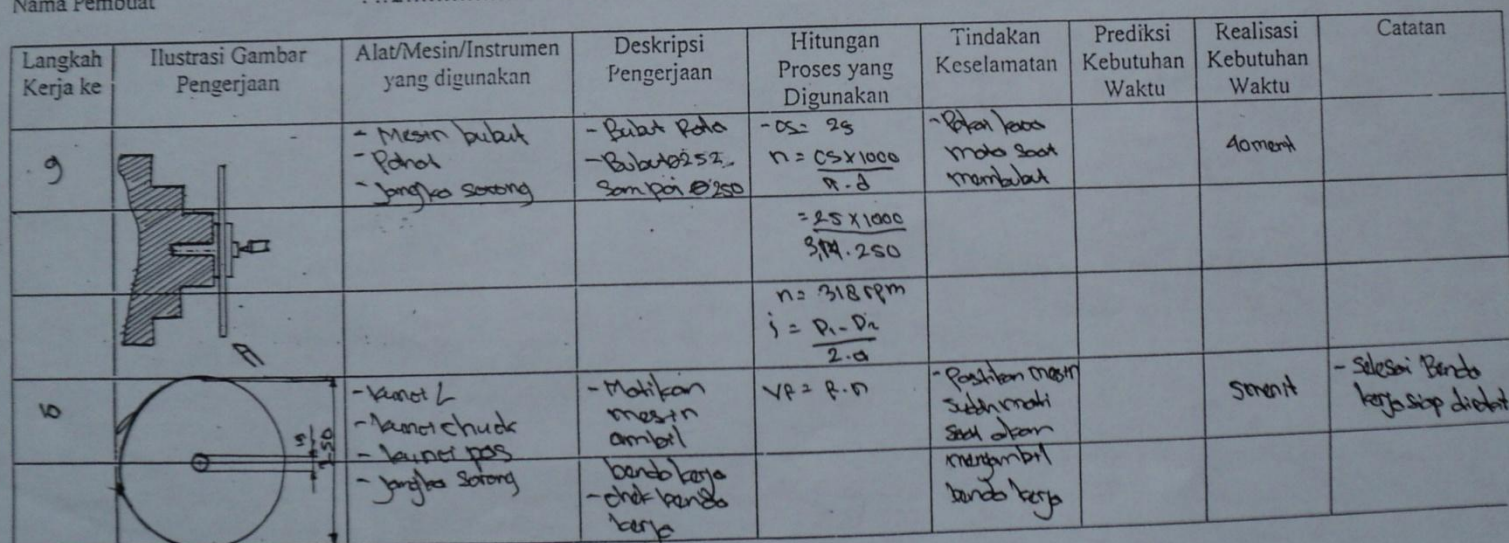 Nama Pembuat
Langkah Kerja ke
Ilustrasi Gambar Pengerjaan
Alat/Mesin/Instrumen yang digunakan
Deskripsi Pengerjaan
Hitungan Proses yang Digunakan
Tindakan Keselamatan
Prediksi Kebutuhan Waktu
Realisasi Kebutuhan Waktu
Catatan
9
- Mesin bubut
- Pahat
- Jangka sorong
- Bubut Rata
- Bubut ø252
Sampai ø250
- CS = 25
n = CS x 1000
π . d
= 25 x 1000
3,14 . 250
n = 318 rpm
i = D1 - D2
2 . a
- Pakai kaca
mata saat
membubut
40 menit
10
5
250
- Kunci L
- Kunci chuck
- Kunci pas
- Jangka Sorong
- Matikan
mesin
ambil
benda kerja
- chek benda
kerja
VF = F . n
- Pastikan mesin
sudah mati
saat akan
mengambil
benda kerja
5 menit
- Selesai Benda
kerja siap